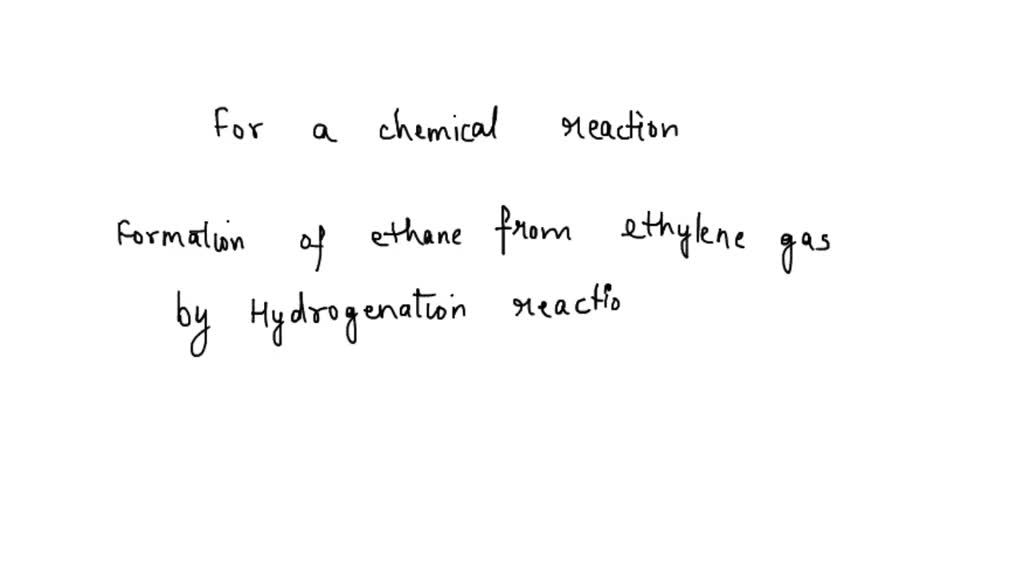 For a chemical reaction
Formation of ethane from ethylene gas
by Hydrogenation reactio